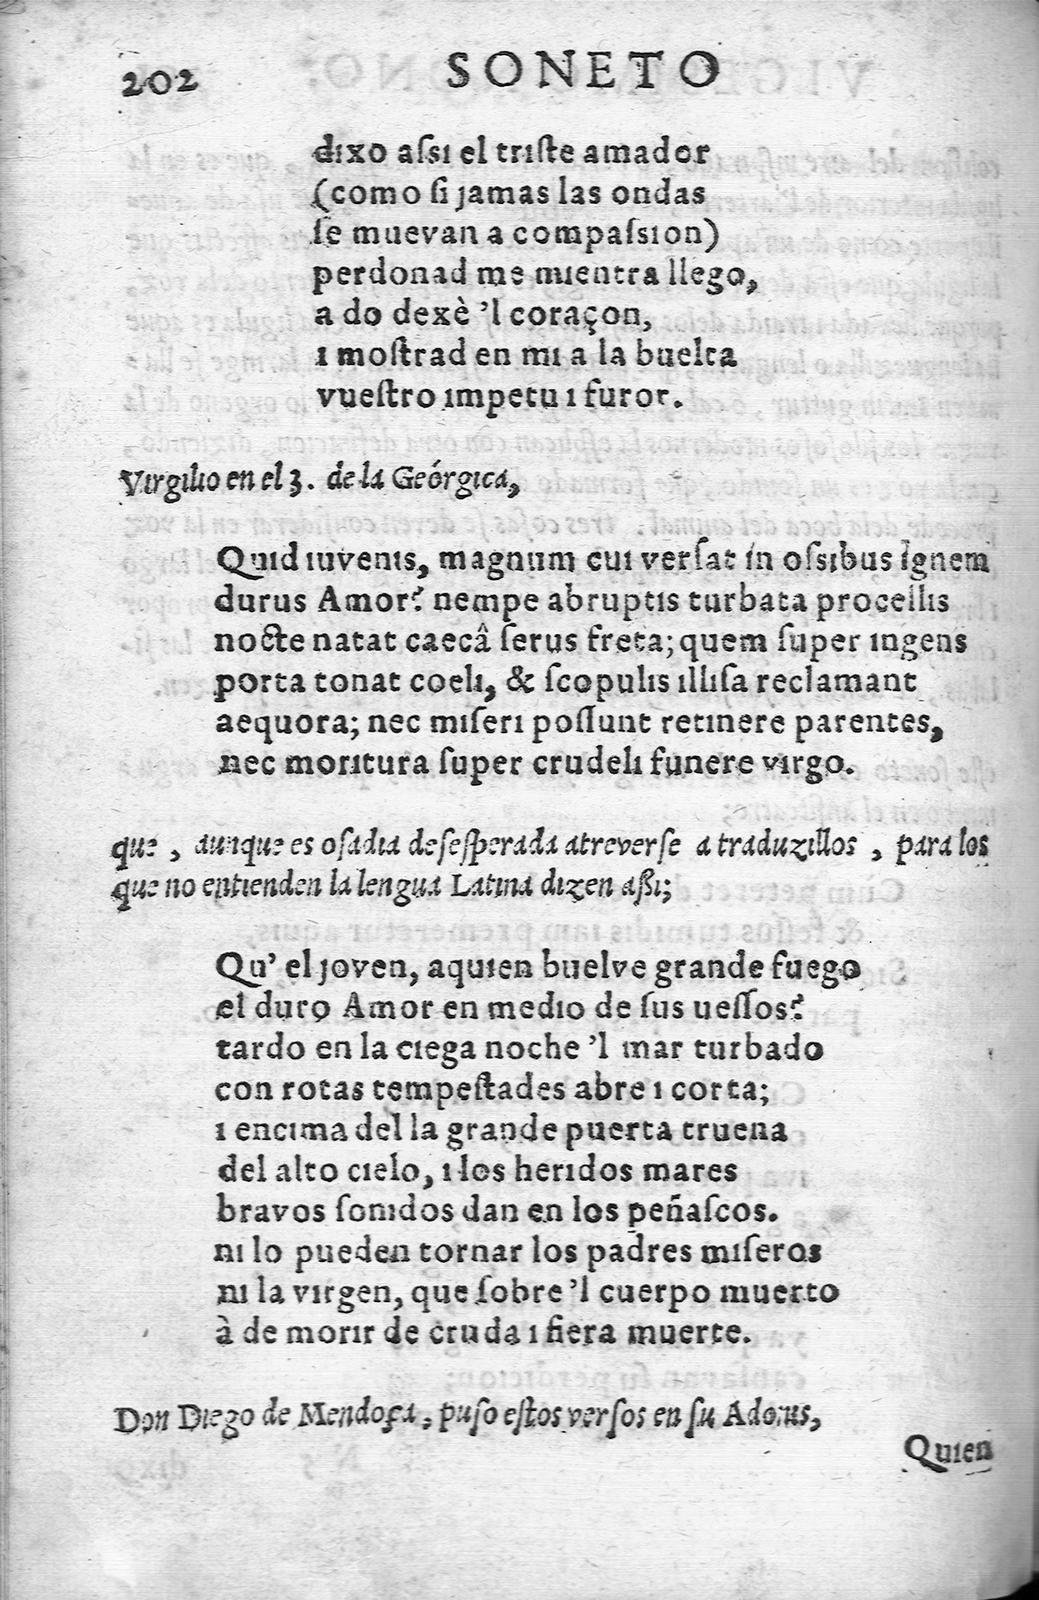 202 SONETO
dıxo aſsı el trıſte amador
(como ſi jamas las ondas
ſe muevan a compaſsıon)
perdonad me mıentra llego,
a do dexè ’l coraçon,
ı moſtrad en mı a la buelta
vueſtro ımpetu ı furor.
Vırgılıo en el 3. de la Geórgıca,
Quıd ıuvenıs, magnum cuı verſat ín oſsıbus ıgnem
durus Amor? nempe abruptıs turbata procellıs
nocte natat caecâ ſerus freta; quem ſuper ıngens
porta tonat coelı, & ſcopulıs ıllıſa reclamant
aequora; nec mıſerı poſſunt retınere parentes,
nec morıtura ſuper crudelı funere vırgo.
que, aunque es oſadıa deſeſperada atreverſe a traduzıllos, para los
que no entıenden la lengua Latına dızen aſsı;
Qu’ el joven, aquıen buelve grande fuego
el duro Amor en medıo de ſus ueſſos?
tardo en la cıega noche ’l mar turbado
con rotas tempeſtades abre ı corta;
ı encıma del la grande puerta truena
del alto cıelo, ı los herıdos mares
bravos ſonıdos dan en los peñaſcos.
nı lo pueden tornar los padres mıſeros
nı la vırgen, que ſobre ’l cuerpo muerto
à de morır de cruda ı fiera muerte.
Don Dıego de Mendoça, puſo eſtos verſos en ſu Adonıs,
Quıen